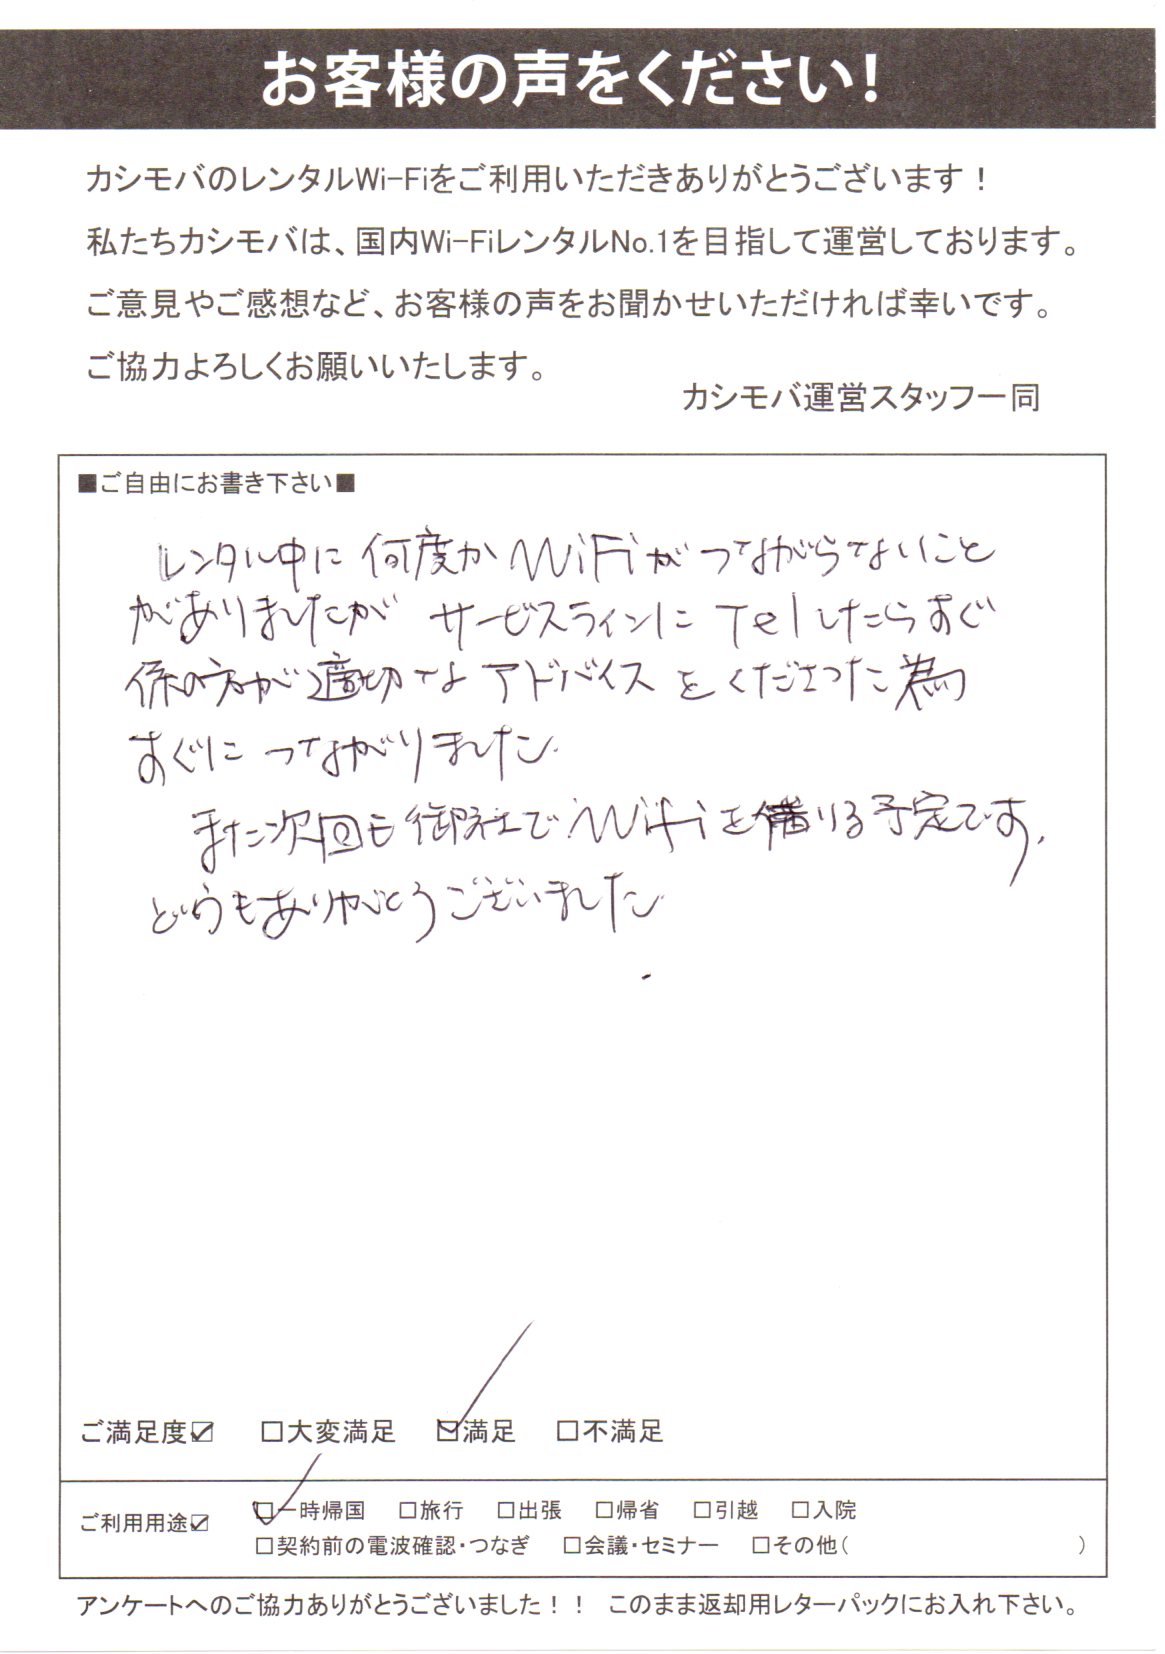 お客様の声をください！
カシモバのレンタルWi-Fiをご利用いただきありがとうございます！
私たちカシモバは、国内Wi-FiレンタルNo.1を目指して運営しております。
ご意見やご感想など、お客様の声をお聞かせいただければ幸いです。
ご協力よろしくお願いいたします。
カシモバ運営スタッフ一同
■ご自由にお書き下さい■
レンタル中に何度かWiFiがつながらないこと
がありましたが サービスラインにTelしたらすぐ
係の方が適切なアドバイスをくださった為
すぐにつながりました.
また次回も御社でWifiを借りる予定です.
どうもありがとうございました.
ご満足度☑ □大変満足 ☑満足 □不満足
ご利用用途☑ ☑一時帰国 □旅行 □出張 □帰省 □引越 □入院
□契約前の電波確認・つなぎ □会議・セミナー □その他( )
アンケートへのご協力ありがとうございました！！ このまま返却用レターパックにお入れ下さい。